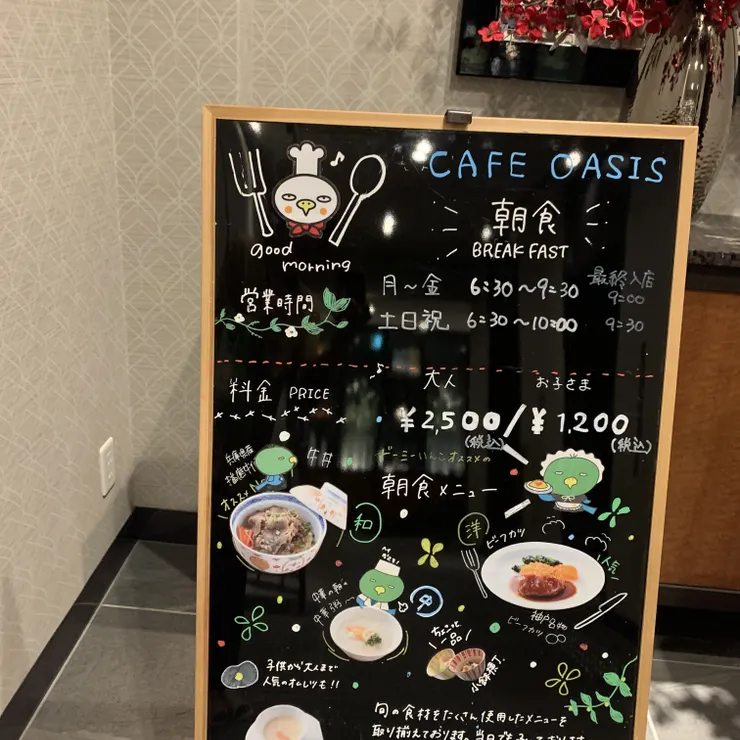 CAFE OASIS
朝食
BREAKFAST
good
morning
営業時間
最終入店
月〜金 6:30〜9:30 9:00
土日祝 6:30〜10:00 9:30
料金 PRICE
大人 お子さま
¥2,500/¥1,200
(税込) (税込)
兵庫県産
オススメ
牛丼
ドーミーいんこオススメの
朝食メニュー
和
洋
ビーフカツ
人気
神戸名物
ビーフカツ
中華の朝は
中華粥〜
中
ちょこっと
一品
小鉢横丁
子供から大人まで
人気のオムレツも!!
旬の食材をたくさん使用したメニューを
取り揃えております。